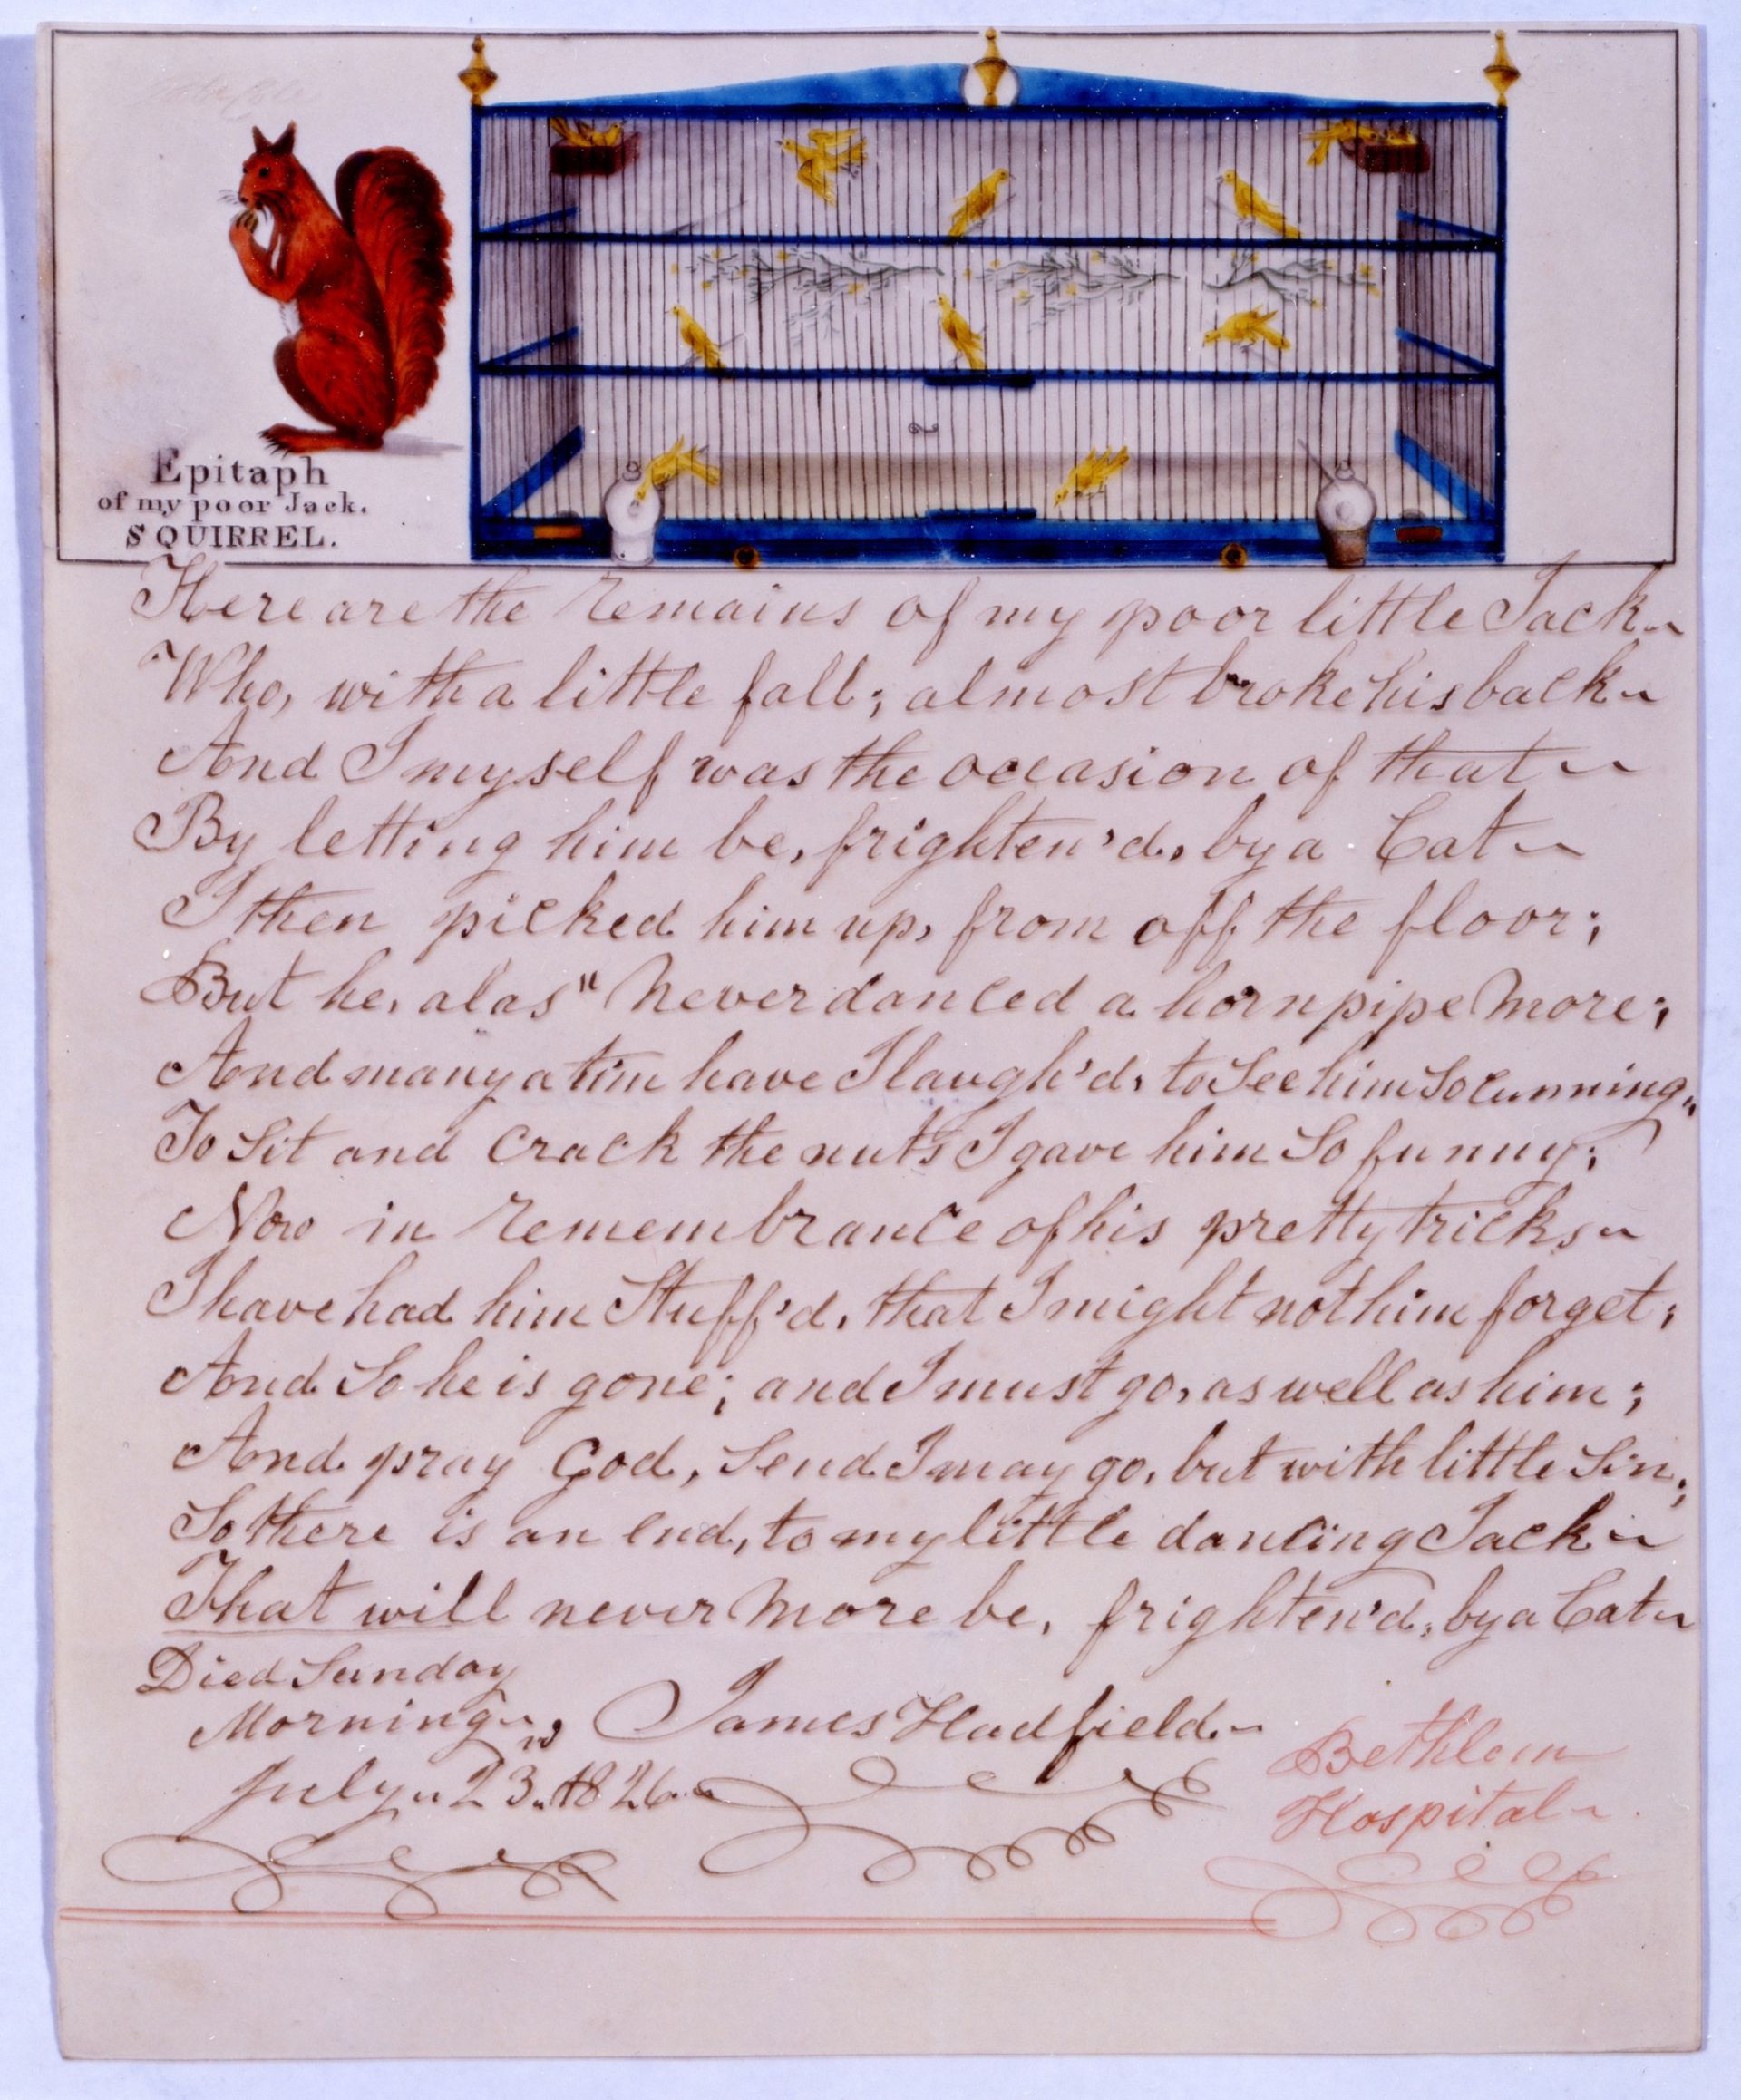 Epitaph
of my poor Jack.
SQUIRREL.
Here are the remains of my poor little Jack~
Who, with a little fall; almost broke his back~
And I myself was the occasion of that~
By letting him be, frighten'd, by a Cat~
I then picked him up, from off the floor;
But he, alas" Never danced a hornpipe More;
And many a tim have I laugh'd, to See him So Cunning"
To Sit and Crack the nuts I gave him So funny;
Now in remembrance of his pretty tricks~
I have had him Stuff'd, that I might not him forget;
And So he is gone; and I must go, as well as him;
And pray God, Send I may go, but with little Sin;
So there is an End, to my little dancing Jack~
That will never More be, frighten'd, by a Cat~
Died Sunday
Morning~ James Hadfield~
July" 23. 1826~
Bethlem
Hospital~